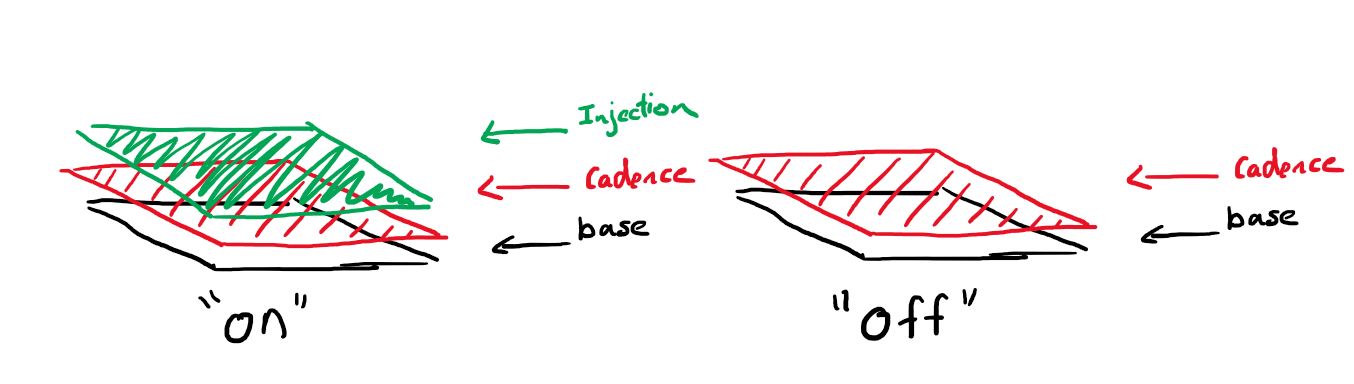 Injection
Cadence
base
"on"
Cadence
base
"Off"